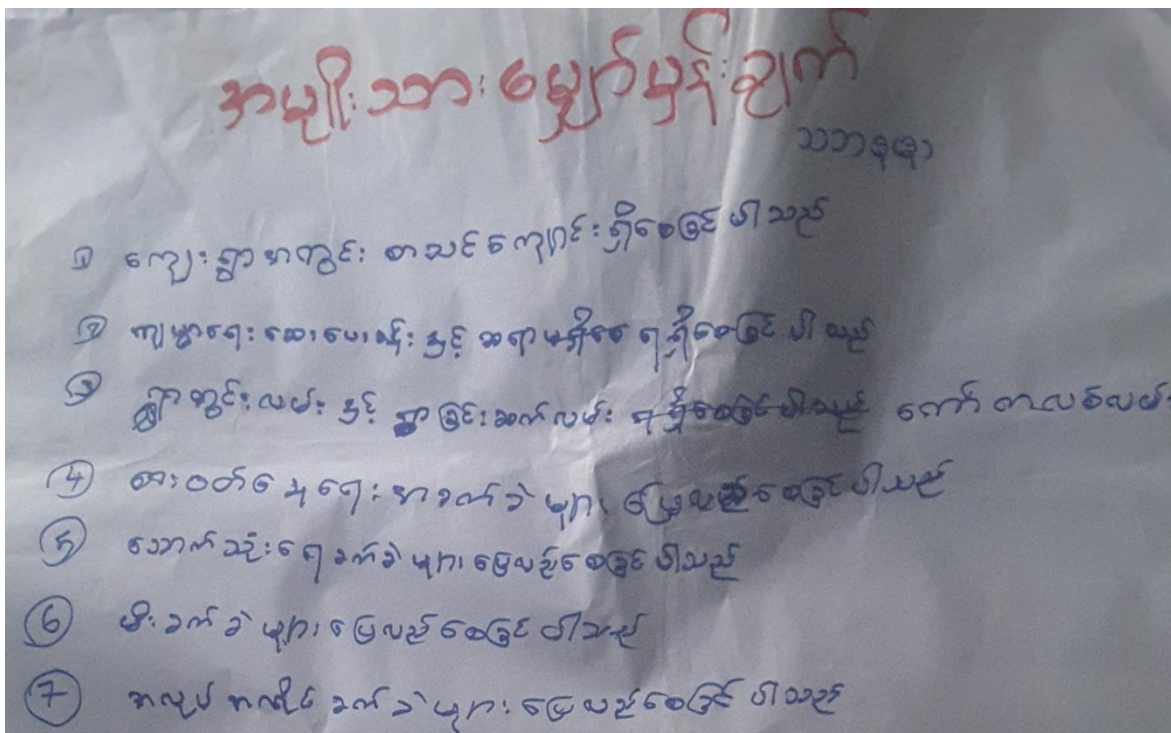 အမျိုးသားမျှော်မှန်းချက်
သဘာနဖာ
① ကျေးရွာအတွင်း စာသင်ကျောင်းရှိစေခြင်ပါသည်
② ကျမ္မာရေး ဆေးပေးခန်းနှင့် ဆရာမရှိစေ ရရှိစေခြင်ပါသည်
③ ရွာတွင်းလမ်းနှင့် ရွာခြင်းဆက်လမ်း ရရှိစေခြင်ပါသည် ကော်တာလစ်လမ်း
④ စားဝတ်နေရေး အခက်ခဲများ ပြေလည်စေခြင်ပါသည်
⑤ သောက်သုံးရေခက်ခဲများ ပြေလည်စေခြင်ပါသည်
⑥ မီးခက်ခဲများ ပြေလည်စေခြင်ပါသည်
⑦ အလုပ်အကိုင်ခက်ခဲများ ပြေလည်စေခြင်ပါသည်